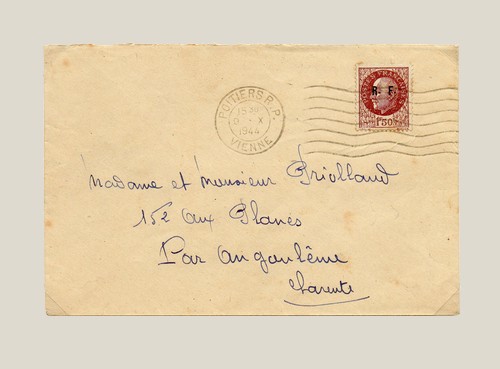 POITIERS R.P.
15 30
9 - X
1944
VIENNE
POSTES FRANÇAISES
R. F.
1F50
Madame et Monsieur Briolland
152 aux Blancs
Par angoulême
Charente